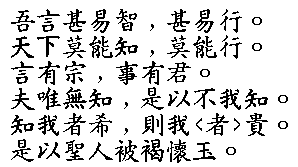 吾言甚易智，甚易行。
天下莫能知，莫能行。
言有宗，事有君。
夫唯無知，是以不我知。
知我者希，則我<者>貴。
是以聖人被褐懷玉。